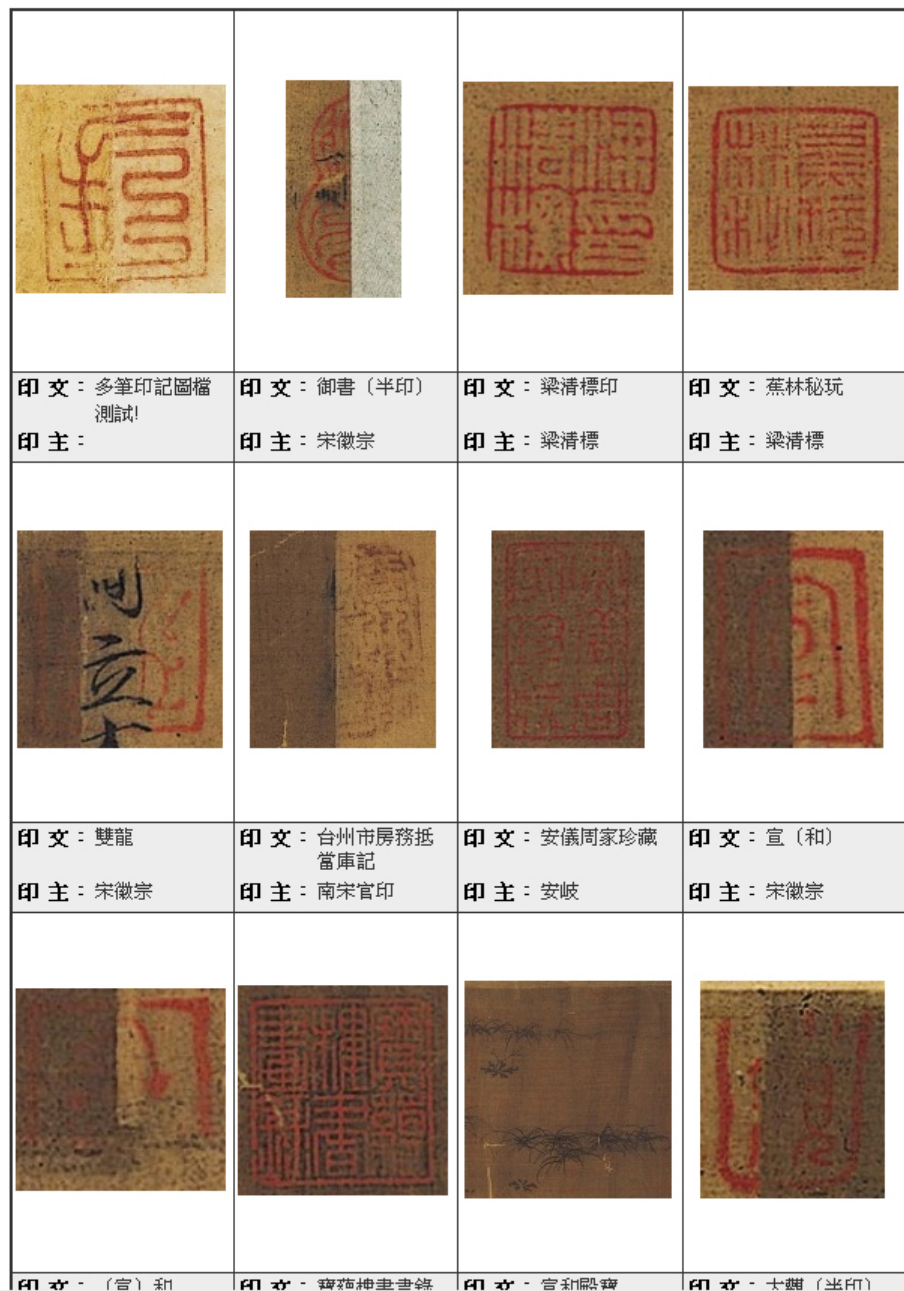 印文：多筆印記圖檔測試!
印主：
印文：御書（半印）
印主：宋徽宗
印文：梁清標印
印主：梁清標
印文：蕉林秘玩
印主：梁清標
间立本
印文：雙龍
印主：宋徽宗
印文：台州市房務抵當庫記
印主：南宋官印
印文：安儀周家珍藏
印主：安岐
印文：宣（和）
印主：宋徽宗
印文：（宣）和
印文：寶蘊樓書畫錄
印文：宣和殿寶
印文：大觀（半印）